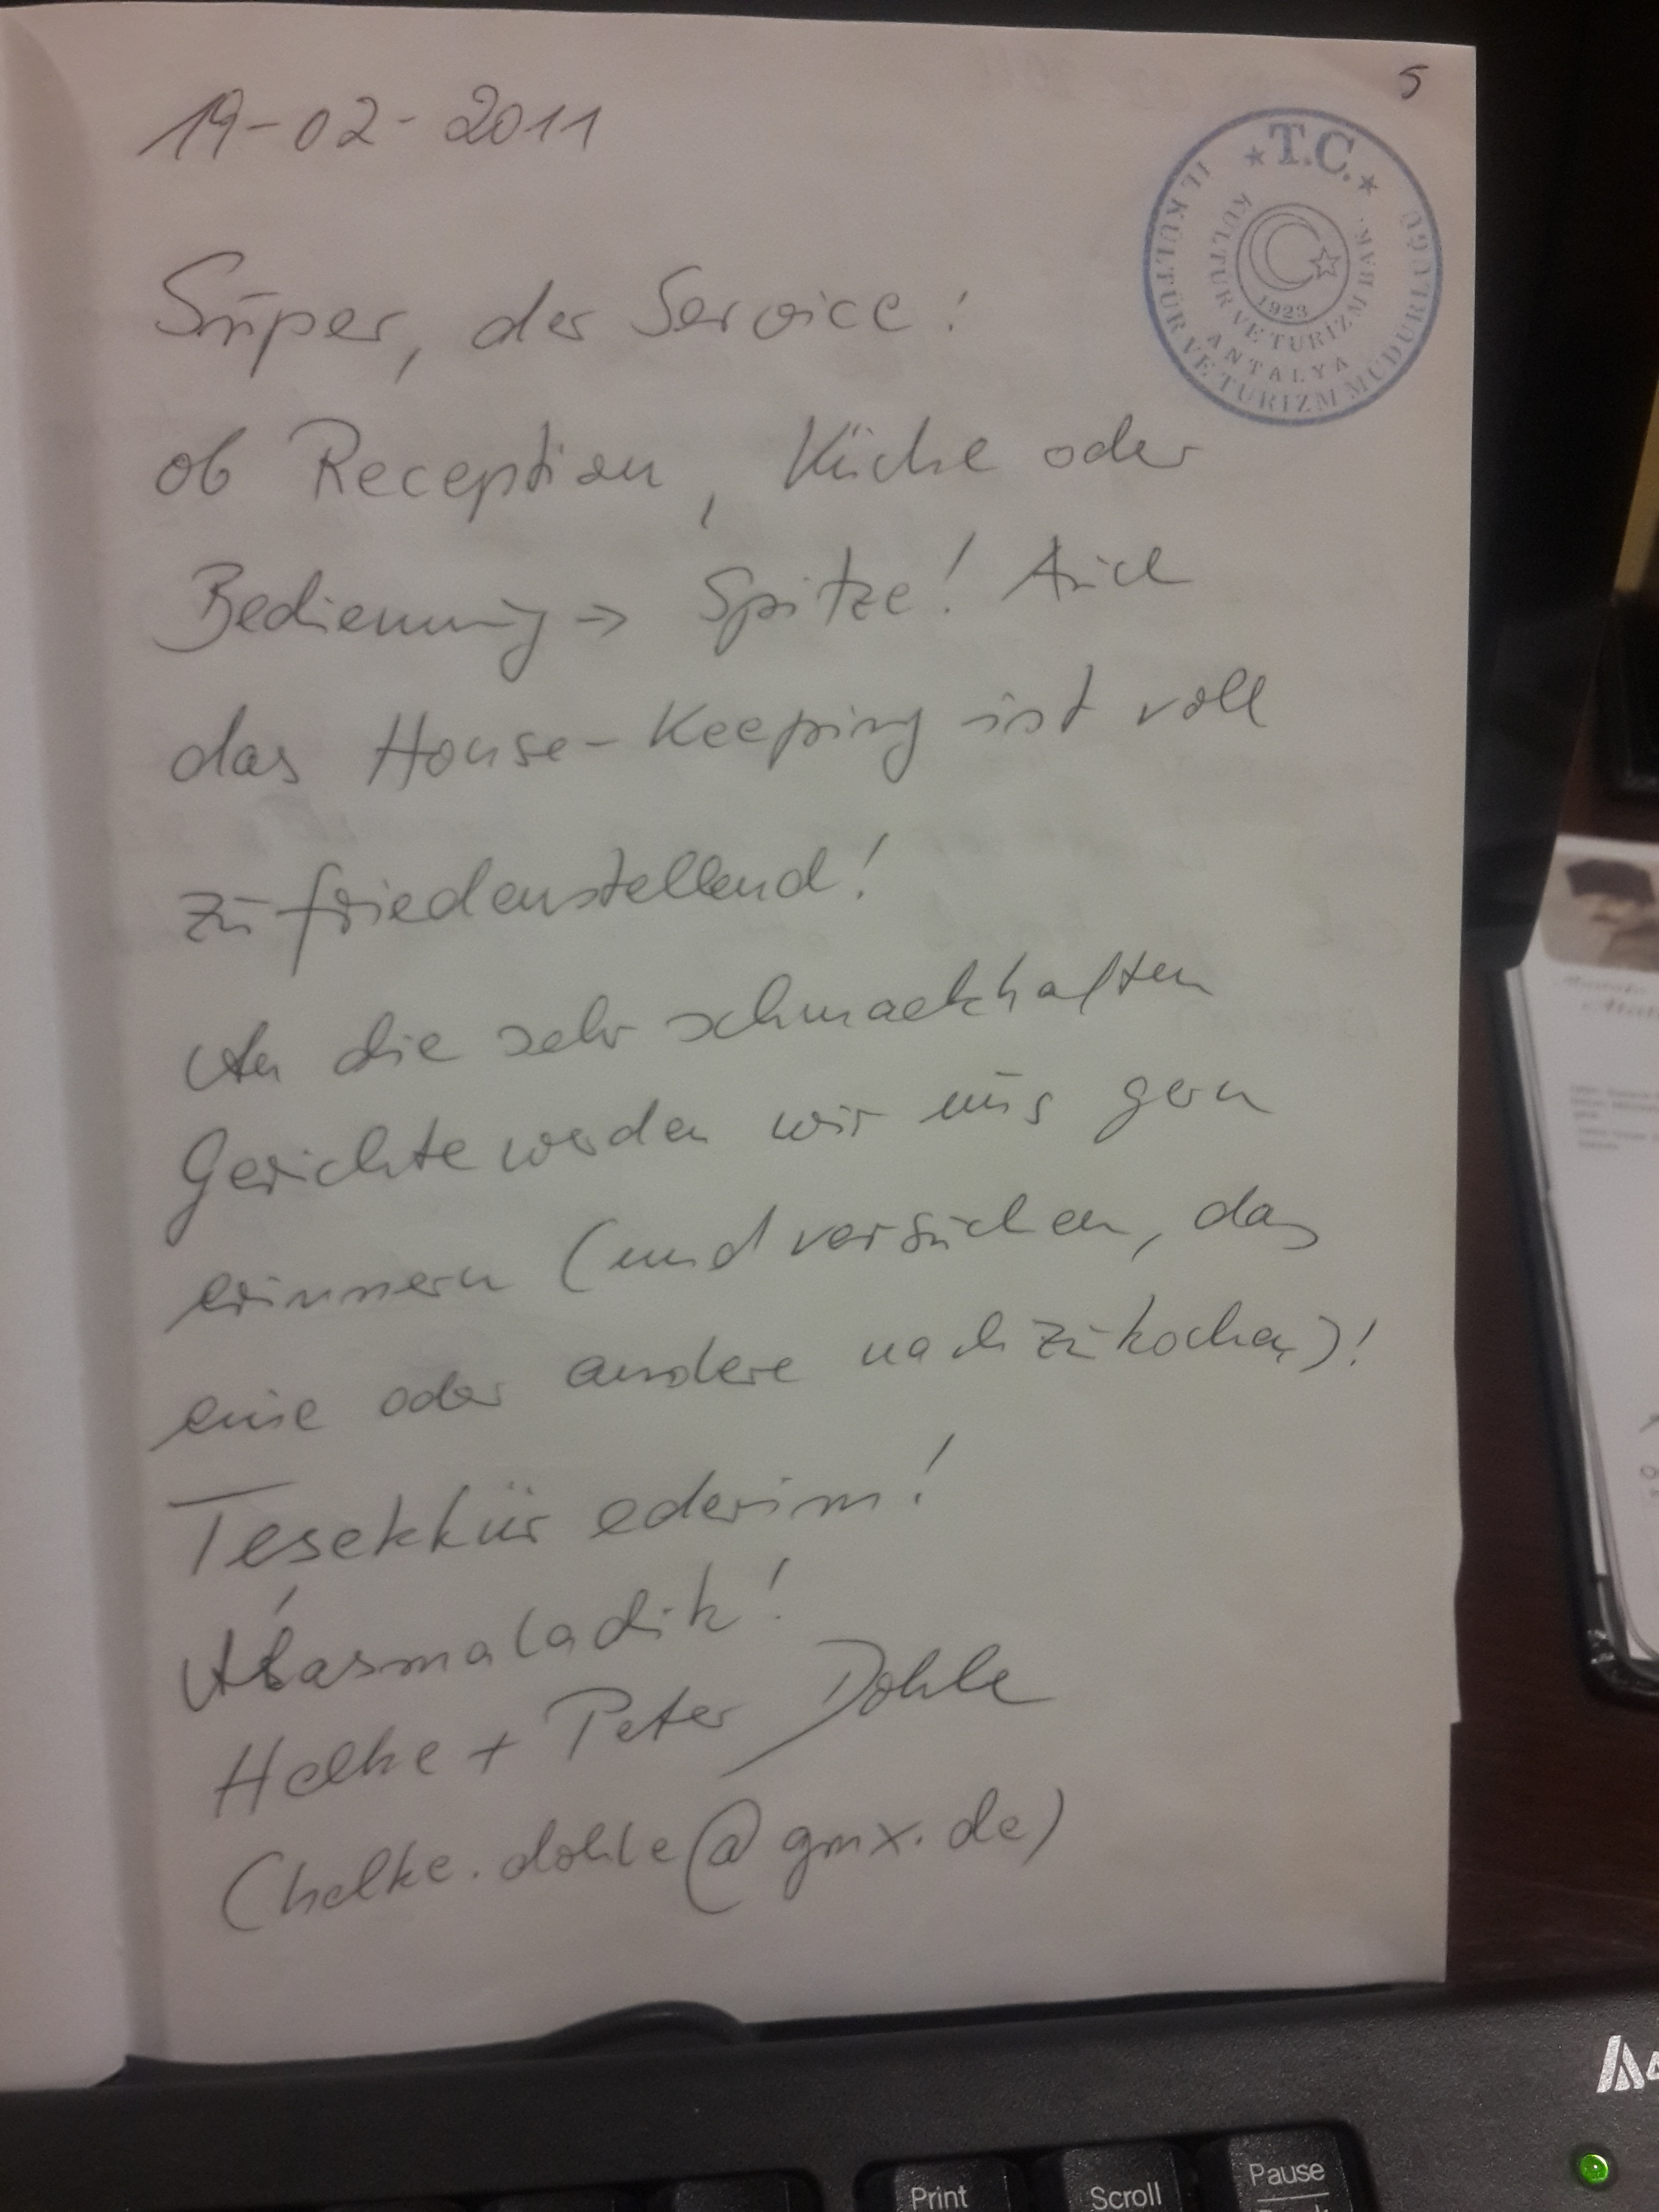 5
19-02-2011
★ T.C. ★
İL KÜLTÜR VE TURİZM MÜDÜRLÜĞÜ
KÜLTÜR VE TURİZM BAK.
1923
ANTALYA
Super, der Service:
ob Reception, Küche oder
Bedienung → Spitze! Auch
das House-Keeping ist voll
zufriedenstellend!
An die sehr schmackhaften
Gerichte werden wir uns gern
erinnern (und versuchen, das
eine oder andere nachzukochen)!
Tesekkür ederim!
Alasmaladik!
Helke + Peter Dohle
(helke.dohle@gmx.de)
Print
Scroll
Pause